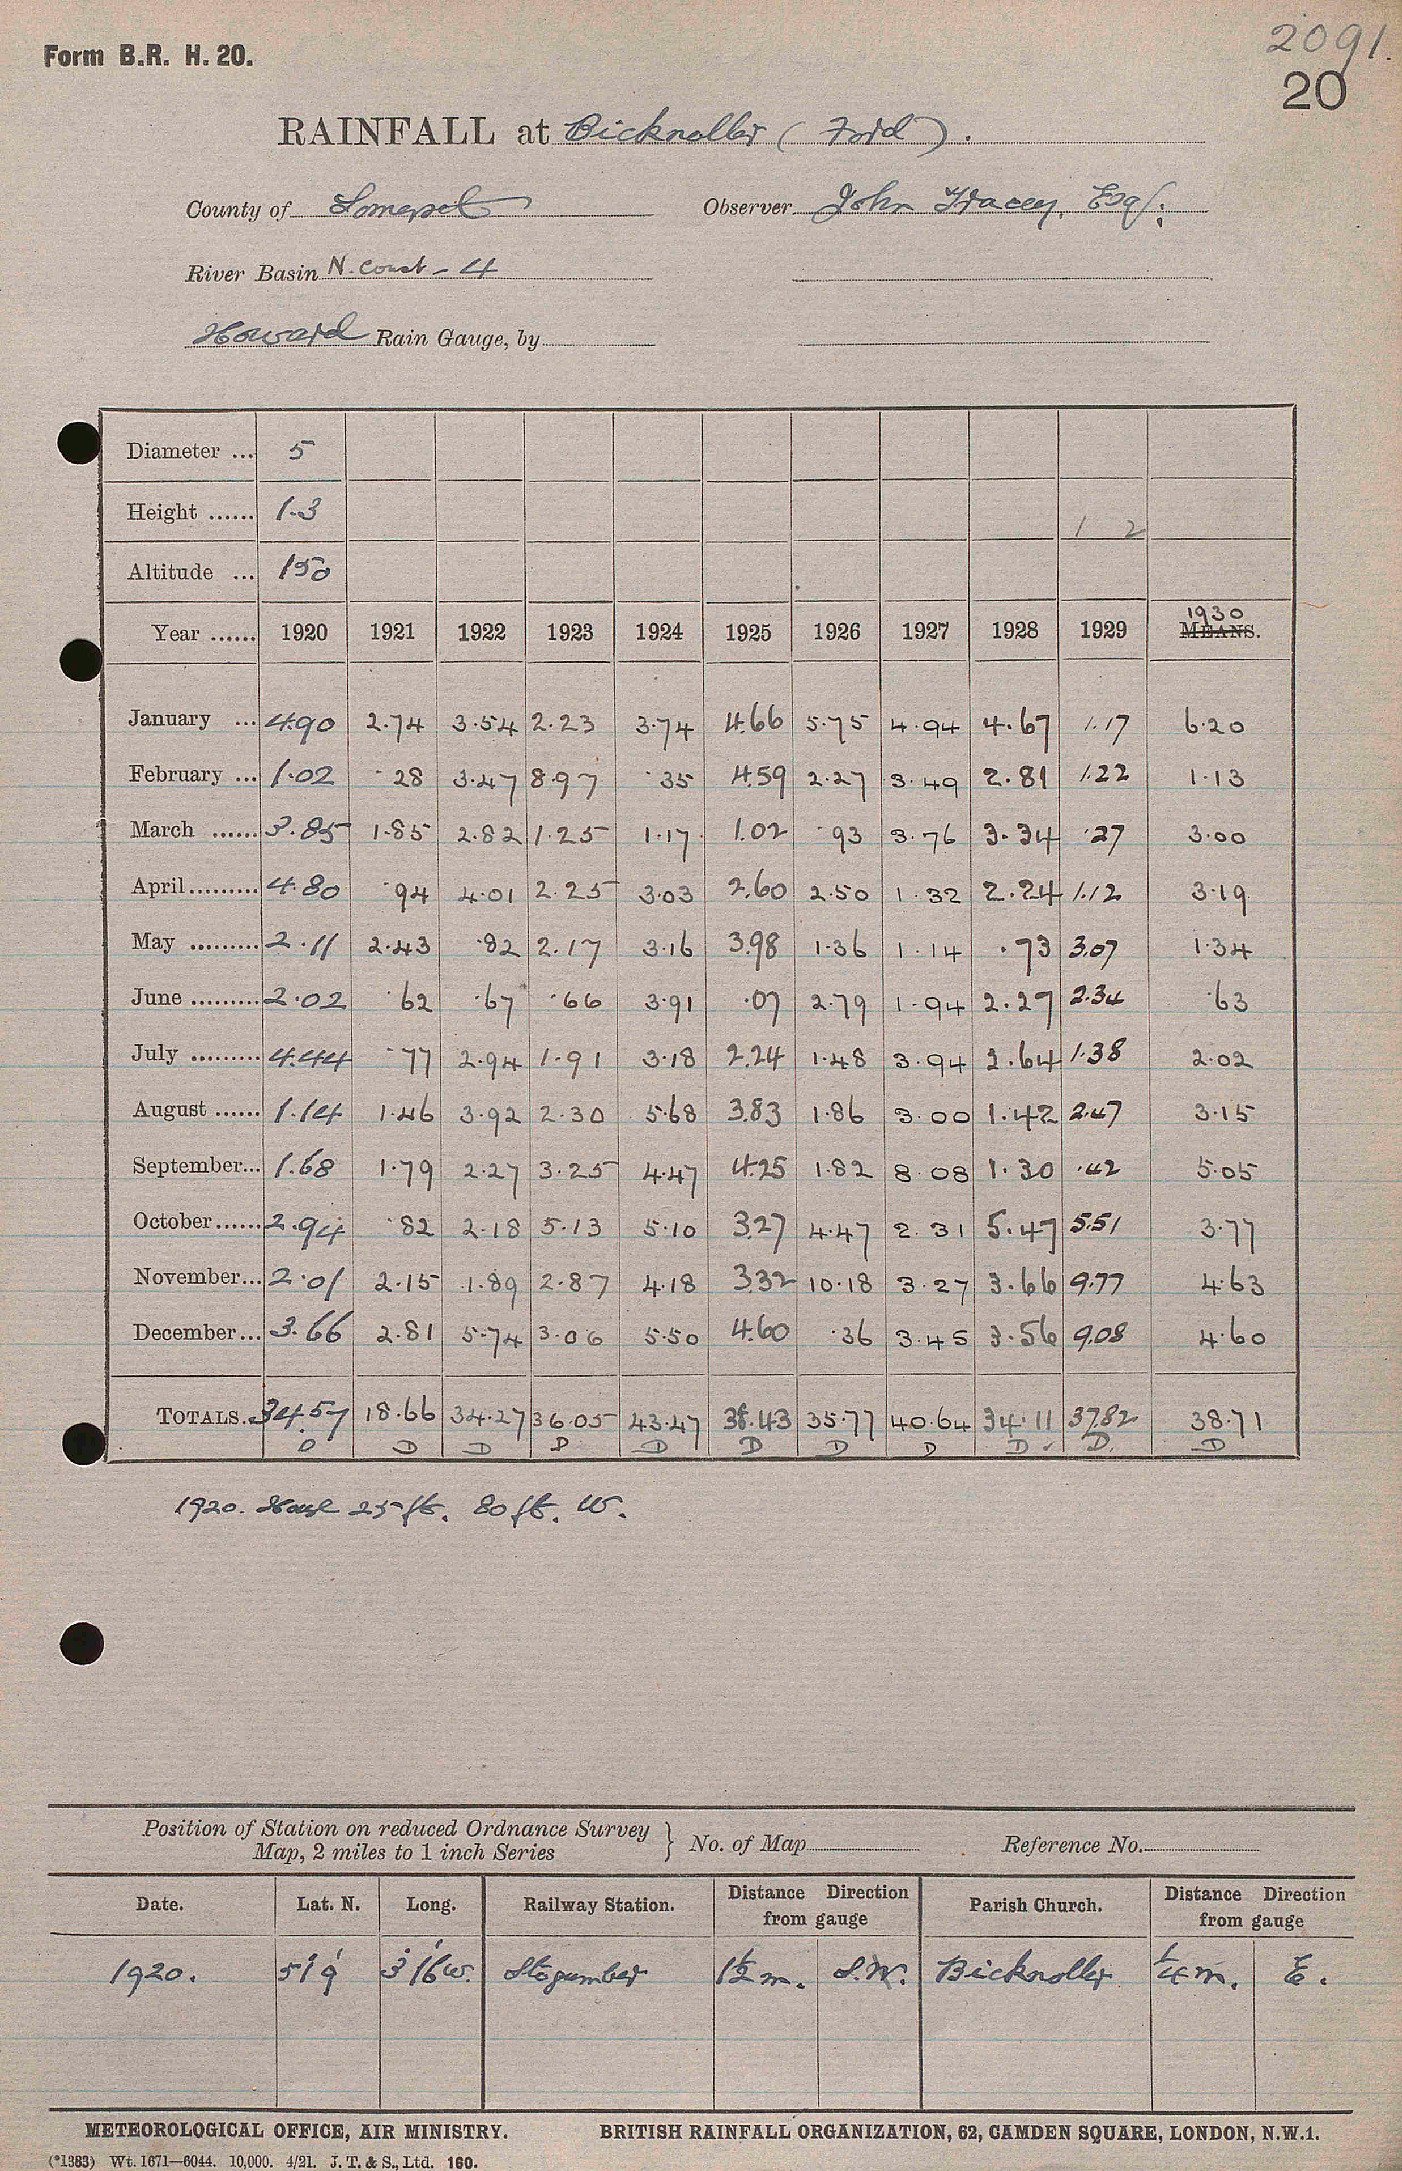 2091.
Form B.R. H. 20.
20
RAINFALL at Bicknoller (Ford).
County of Somerset Observer John Tracey, Esq;
River Basin N. Coast - 4
Howard Rain Gauge, by
Diameter ... 5
Height ...... 1.3 1 2
Altitude ... 150
Year ...... 1920 1921 1922 1923 1924 1925 1926 1927 1928 1929 1930 MEANS.
January ... 4.90 2.74 3.54 2.23 3.74 4.66 5.75 4.94 4.67 1.17 6.20
February ... 1.02 .28 3.47 8.97 .35 4.59 2.27 3.49 2.81 1.22 1.13
March ...... 3.85 1.85 2.82 1.25 1.17 1.02 .93 3.76 3.34 .27 3.00
April ......... 4.80 .94 4.01 2.25 3.03 2.60 2.50 1.32 2.24 1.12 3.19
May ......... 2.11 2.43 .82 2.17 3.16 3.98 1.36 1.14 .73 3.07 1.34
June ......... 2.02 .62 .67 .66 3.91 .07 2.79 1.94 2.27 2.34 .63
July ......... 4.44 .77 2.94 1.91 3.18 2.24 1.48 3.94 2.64 1.38 2.02
August ...... 1.14 1.46 3.92 2.30 5.68 3.83 1.86 3.00 1.42 2.47 3.15
September... 1.68 1.79 2.27 3.25 4.47 4.25 1.82 8.08 1.30 .42 5.05
October ...... 2.94 .82 2.18 5.13 5.10 3.27 4.47 2.31 5.47 5.51 3.77
November... 2.01 2.15 1.89 2.87 4.18 3.32 10.18 3.27 3.66 9.77 4.63
December... 3.66 2.81 5.74 3.06 5.50 4.60 .36 3.45 3.56 9.08 4.60
TOTALS. 34.57 18.66 34.27 36.05 43.47 38.43 35.77 40.64 34.11 37.82 38.71
D D D D D D D D D ✓ D D
1920. House 25 ft. 80 ft. W.
Position of Station on reduced Ordnance Survey
Map, 2 miles to 1 inch Series } No. of Map Reference No.
Date. Lat. N. Long. Railway Station. Distance Direction from gauge Parish Church. Distance Direction from gauge
1920. 51° 9' 3° 16' W. Stogumber 1½ m. S.W. Bicknoller ¼ m. E.
METEOROLOGICAL OFFICE, AIR MINISTRY. BRITISH RAINFALL ORGANIZATION, 62, CAMDEN SQUARE, LONDON, N.W.1.
(*1383) Wt. 1671—6044. 10,000. 4/21. J. T. & S., Ltd. 160.